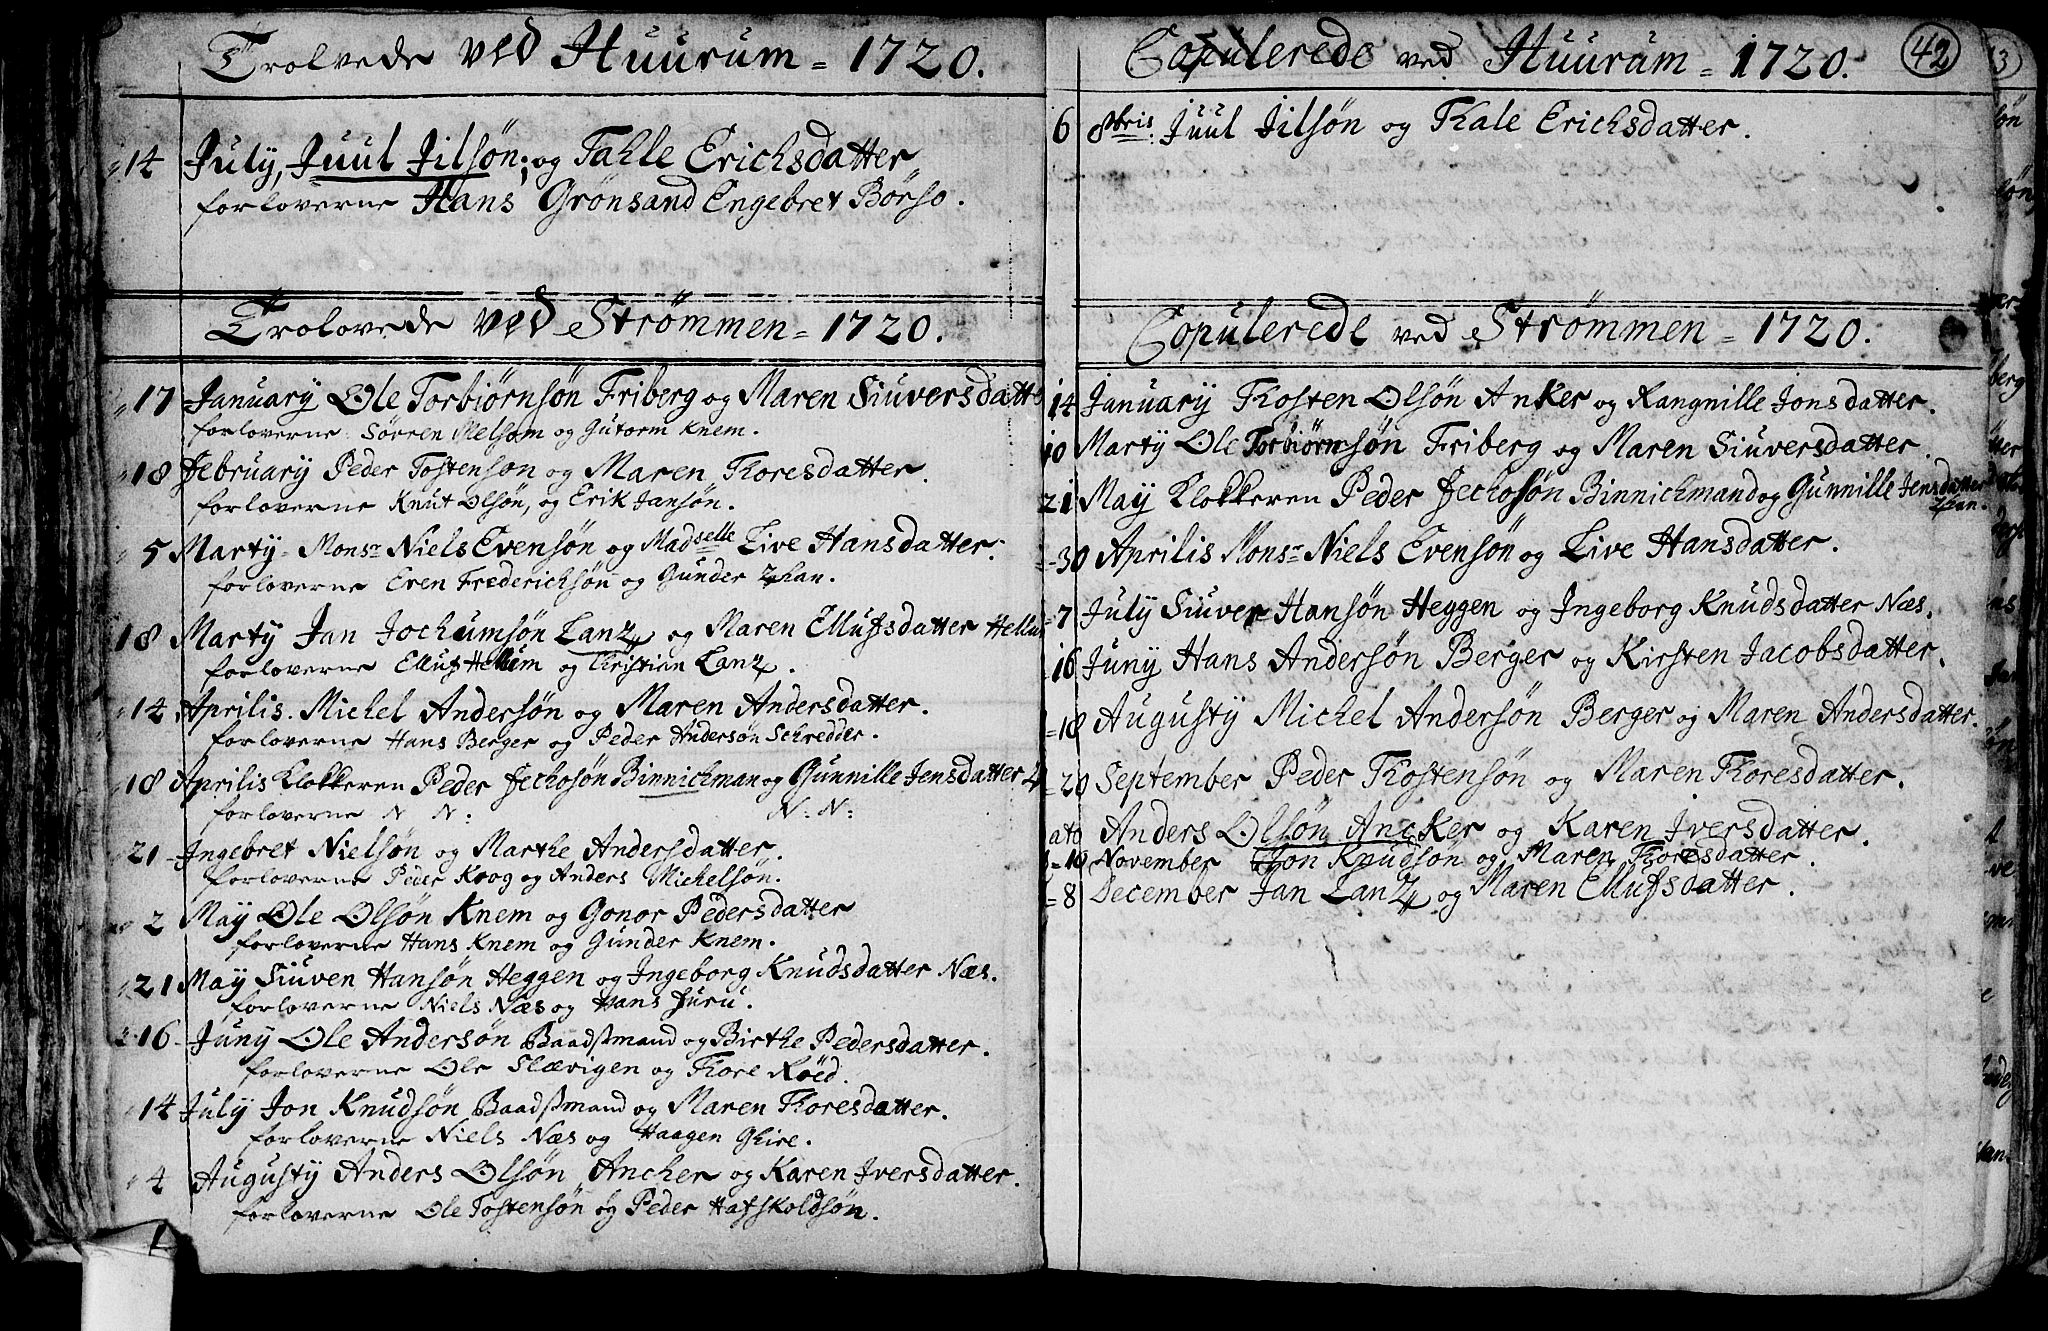 Trolvede ved Huurum = 1720.
14 July, Juul Jilsön; og Tahle Erichsdatter
forloverne Hans Grönsand Engebret Börso.
Trolovede ved Strömmen = 1720.
17 January Ole Torbiörnsön Friberg og Maren Siuversdatte
forloverne Sörren Melsom og Gutorm Knem.
18 February Peder Tostenson og Maren Thoresdatter.
forloverne Knut Olsön, og Erik Jansön.
5 Marty Monsr Niels Evensön og Madselle Live Hansdatter.
forloverne Even Frederichsön og Gunder
18 Marty Jan Jochumsön Lanz og Maren Ellufsdatter Hellu
forloverne Elluf Hellum og Christien Lanz.
14 Aprilis. Michel Andersön og Maren Andersdatter.
forloverne Hans Berger og Peder Andersön Schredder.
18 Aprilis Klokkeren Peder Jechosön Binnichman og Gunnille Jensdatter
forloverne N N: N: N:
21 Ingebret Nielsön og Marthe Andersdatter.
forloverne Peder Krog og Anders Michelsön.
2 May Ole Olsön Knem og Gonor Pedersdatter
forloverne Hans Knem og Gunder Knem.
21 May Siuven Hansön Heggen og Ingeborg Knudsdatter Næs.
forloverne Niels Næs og Hans Furu.
16 Juny Ole Andersön Baadßmand og Birthe Pedersdatter.
forloverne Ole Stævigen og Thore Röed.
14 July Jon Knudsön Baadßmand og Maren Thoresdatter.
forloverne Niels Næs og Haagen Ghire.
4 Augusty Anders Olsön Ancher og Karen Iversdatter.
forloverne Ole Tostensön og Peder Hafskoldsön.
Copulerede ved Huurum = 1720.
42
6 8bris Juul Jilsön og Thale Erichsdatter.
Copulerede ved Strömmen = 1720.
14 January Thosten Olsön Anker og Rangnille Jonsdatter.
10 Marty Ole Torbiörnsön Friberg og Maren Siuversdatter.
21 May Klokkeren Peder Jechosön Binnichmand og Gunnille Jensdatter
30 Aprilis Monsr Niels Evensön og Live Hansdatter.
7 July Siuver Hansön Heggen og Ingeborg Knudsdatter Næs.
16 Juny Hans Andersön Berger og Kirsten Jacobsdatter.
18 Augusty Michel Andersön Berger og Maren Andersdatter.
20 September Peder Thostensön og Maren Thoresdatter.
ato Anders Olsön Ancker og Karen Iversdatter.
10 November Jon Knudsön og Maren Thoresdatter.
8 December Jan Lanz og Maren Ellufsdatter.